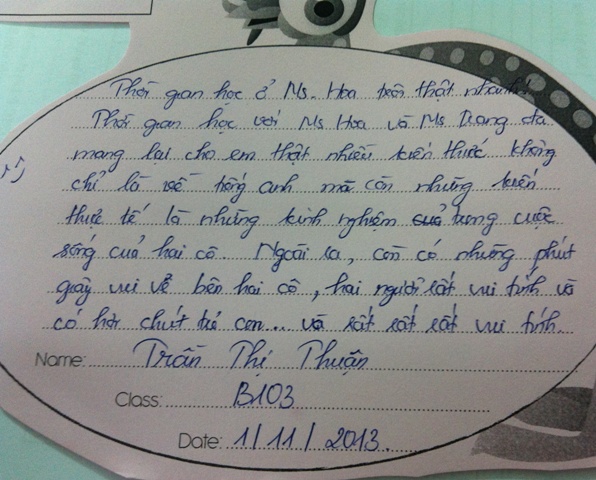 Thời gian học ở Ms. Hoa trôi thật nhanh!
Thời gian học với Ms Hoa và Ms Trang đã
mang lại cho em thật nhiều kiến thức không
chỉ là về tiếng anh mà còn những kiến
thực tế là những kinh nghiệm trong cuộc
sống của hai cô. Ngoài ra, còn có những phút
giây vui vẻ bên hai cô, hai người rất vui tính và
có hơi chút trẻ con... và rất rất rất vui tính.
Name: Trần Thị Thuận
Class: B103
Date: 1/11/2013.